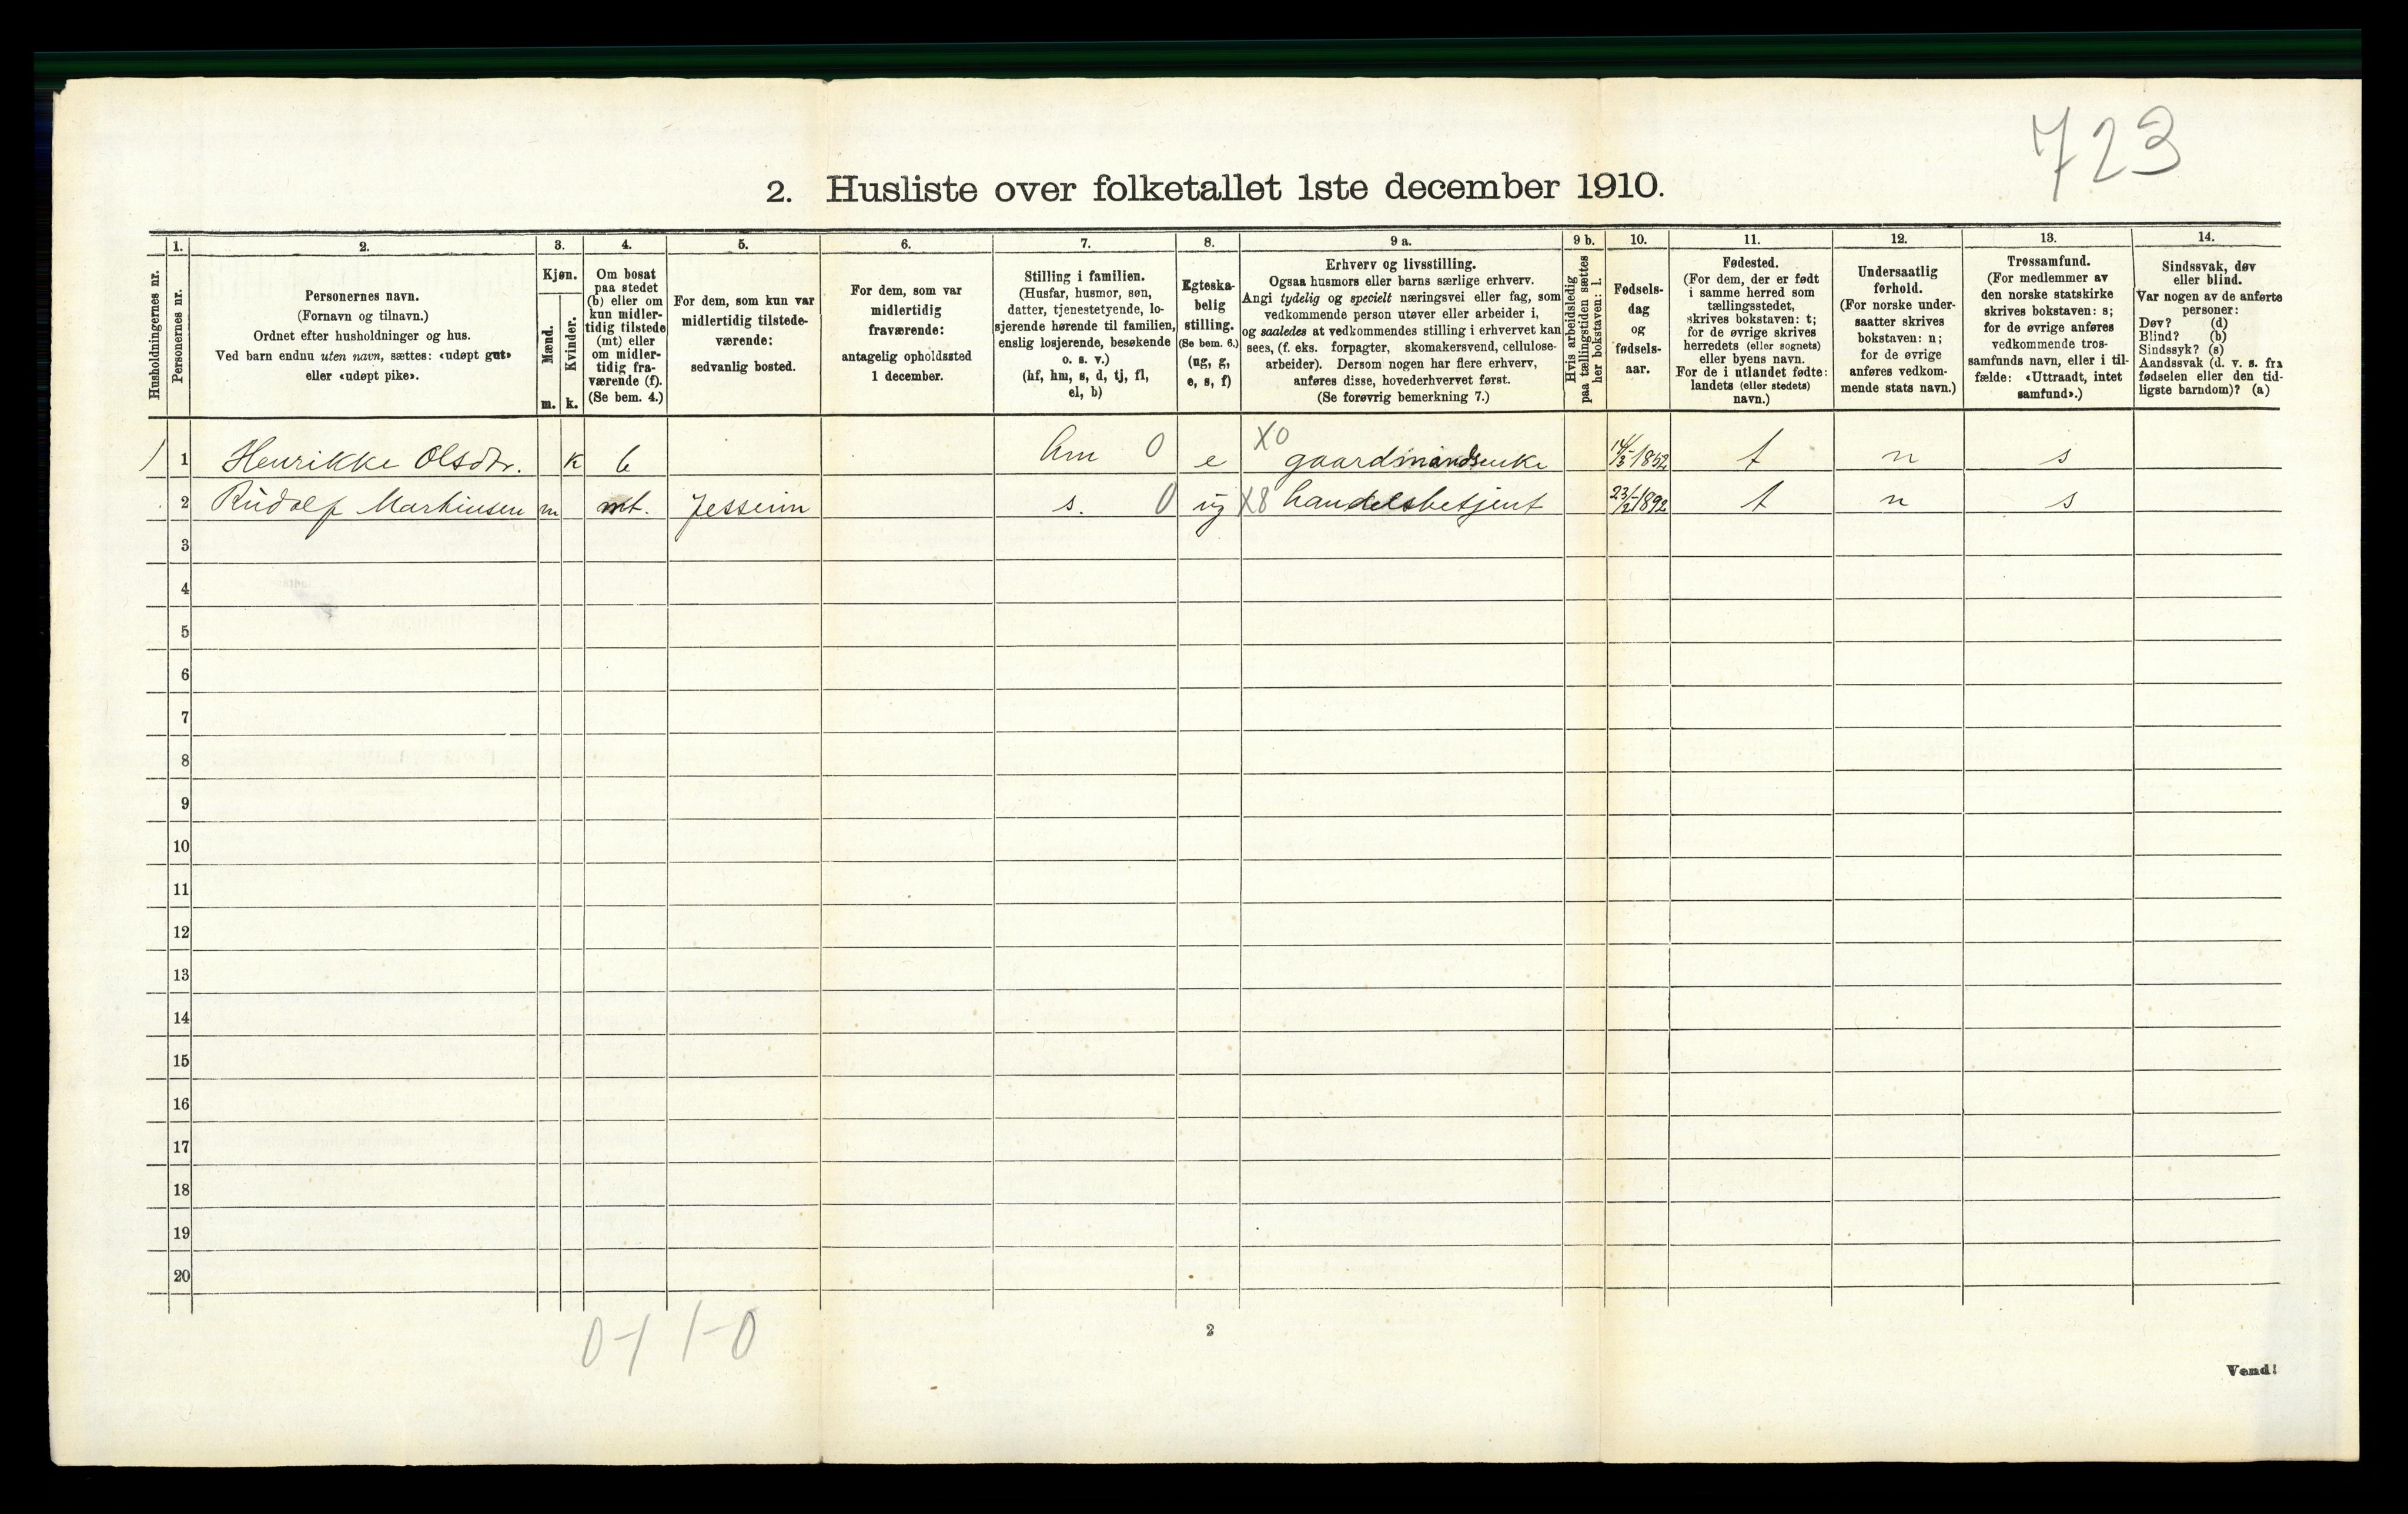 723
2. Husliste over folketallet 1ste december 1910.
Husholdningernes nr.
1.
Personernes nr.
2.
Personernes navn.
(Fornavn og tilnavn.)
Ordnet efter husholdninger og hus.
Ved barn endnu uten navn, sættes: «udøpt gut»
eller «udøpt pike».
3.
Kjøn.
Mænd.
Kvinder.
m. k.
4.
Om bosat
paa stedet
(b) eller om
kun midler-
tidig tilstede
(mt) eller
om midler-
tidig fra-
værende (f).
(Se bem. 4.)
5.
For dem, som kun var
midlertidig tilstede-
værende:
sedvanlig bosted.
6.
For dem, som var
midlertidig
fraværende:
antagelig opholdssted
1 december.
7.
Stilling i familien.
(Husfar, husmor, søn,
datter, tjenestetyende, lo-
sjerende hørende til familien,
enslig losjerende, besøkende
o. s. v.)
(hf, hm, s, d, tj, fl,
el, b)
8.
Egteska-
belig
stilling.
(Se bem. 6.)
(ug, g,
e, s, f)
9 a.
Erhverv og livsstilling.
Ogsaa husmors eller barns særlige erhverv.
Angi tydelig og specielt næringsvei eller fag, som
vedkommende person utøver eller arbeider i,
og saaledes at vedkommendes stilling i erhvervet kan
sees, (f. eks. forpagter, skomakersvend, cellulose-
arbeider). Dersom nogen har flere erhverv,
anføres disse, hovederhvervet først.
(Se forøvrig bemerkning 7.)
9 b.
Hvis arbeidsledig
paa tællingstiden sættes
her bokstaven: l.
10.
Fødsels-
dag
og
fødsels-
aar.
11.
Fødested.
(For dem, der er født
i samme herred som
tællingsstedet,
skrives bokstaven: t;
for de øvrige skrives
herredets (eller sognets)
eller byens navn.
For de i utlandet fødte:
landets (eller stedets)
navn.)
12.
Undersaatlig
forhold.
(For norske under-
saatter skrives
bokstaven: n;
for de øvrige
anføres vedkom-
mende stats navn.)
13.
Trossamfund.
(For medlemmer av
den norske statskirke
skrives bokstaven: s;
for de øvrige anføres
vedkommende tros-
samfunds navn, eller i til-
fælde: «Uttraadt, intet
samfund».)
14.
Sindssvak, døv
eller blind.
Var nogen av de anførte
personer:
Døv? (d)
Blind? (b)
Sindssyk? (s)
Aandssvak (d. v. s. fra
fødselen eller den tid-
ligste barndom)? (a)
1 1 Henrikke Olsdtr. k b hm 0 e X0 gaardmandsenke 14/3-1852 t n s
2 Rudolf Martinsen m mt. Jessum s. 0 ug X8 handelsbetjent 23/2-1892 t n s
3
4
5
6
7
8
9
10
11
12
13
14
15
16
17
18
19
20
0-1 1-0
2
Vend!